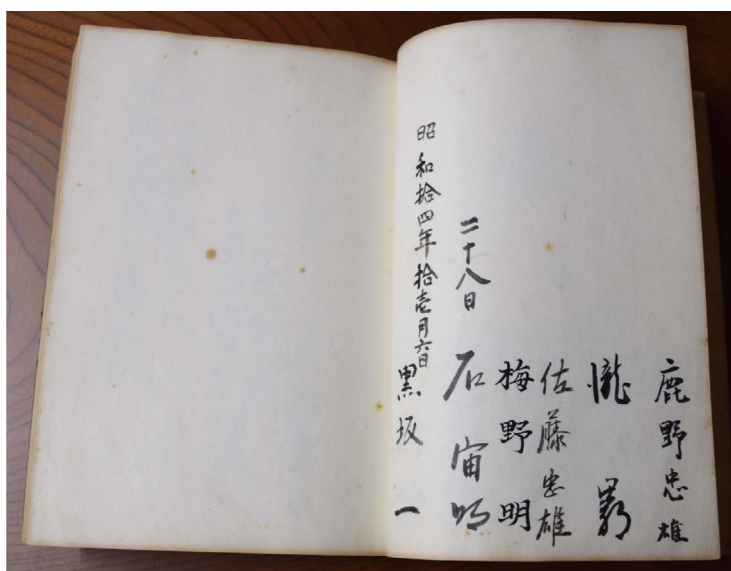 鹿野忠雄
佐藤忠雄
梅野明
二十八日
石宙明
昭和拾四年拾壱月六日
黒坂一